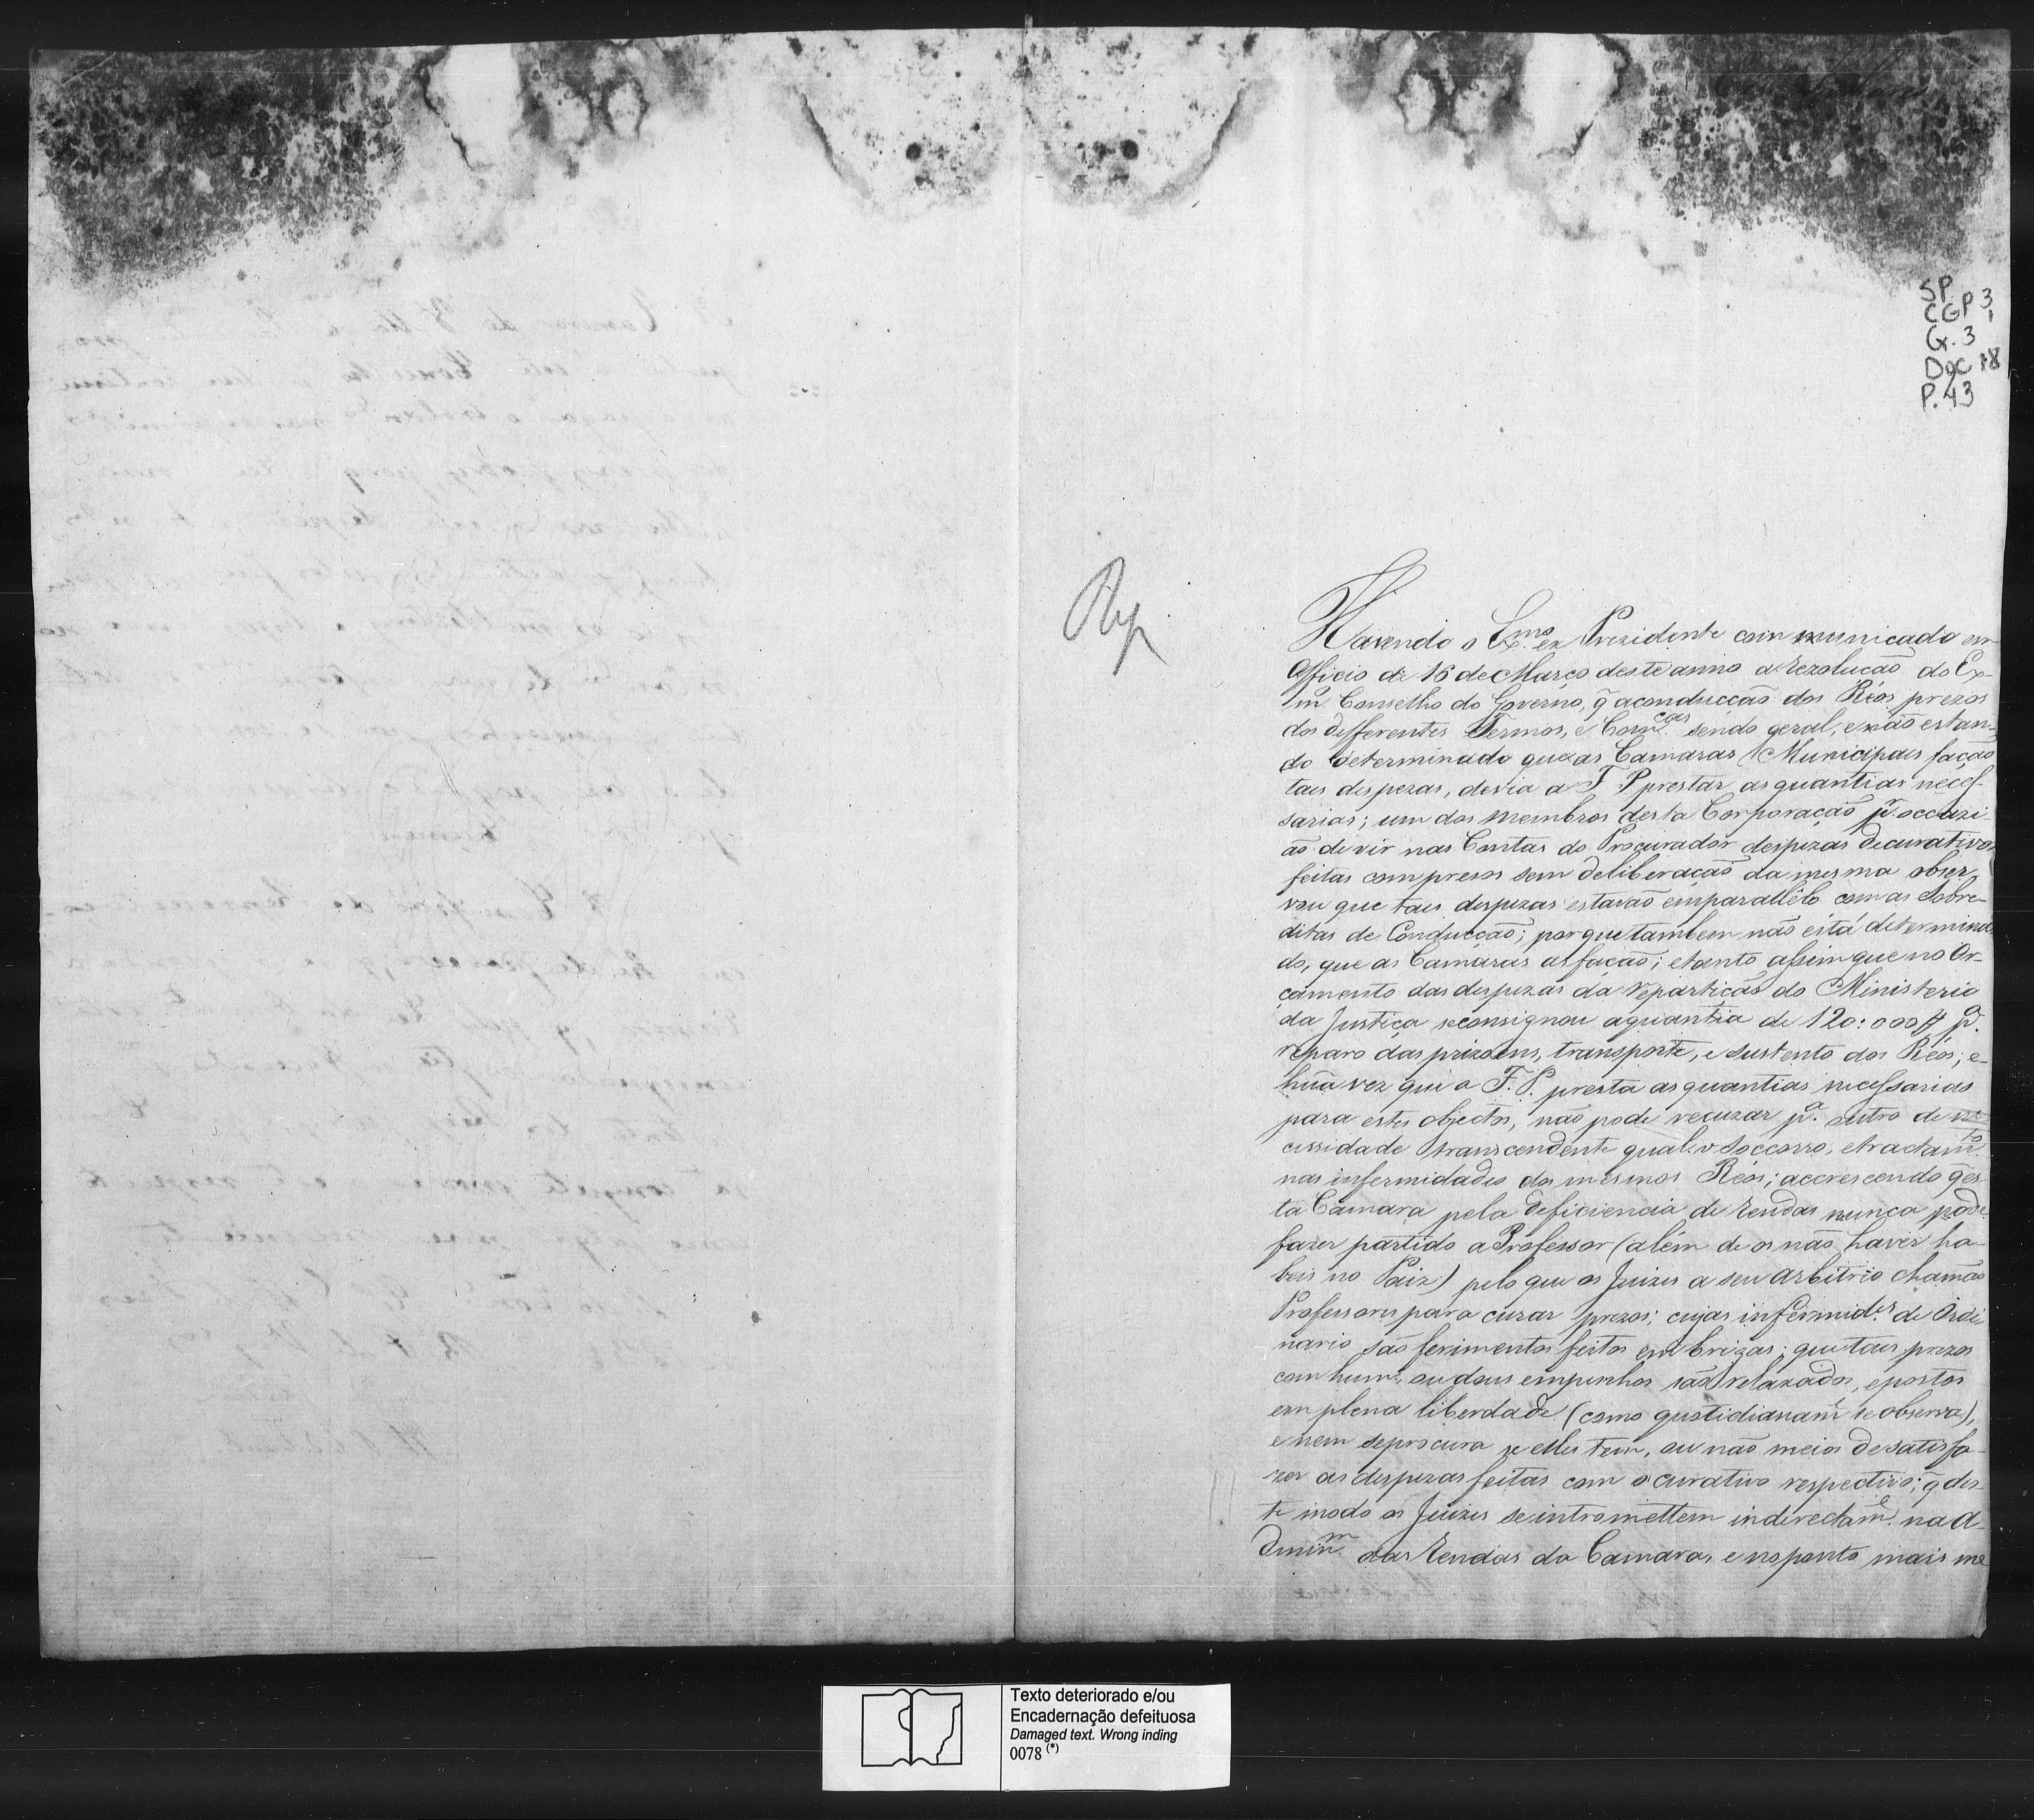 SP
CGP 3,
Cx. 3
Doc 18
P. 43
Havendo o Exmo. Prezidente communicado em
Officio de 16 de Março deste anno a rezolucaõ do Ex-
m. Conselho do Governo, q̃ aconducçaõ dos Réos prezos
dos differentes Termos, e Comcas. sendo geral, enaõ estan-
do determinado que as Camaras Municipaes façaõ
taes despezas, devia a F. P prestar as quantias necef-
sarias; um dos membros desta Corporaçaõ pr. occazi-
aõ de vir nas Contas do Procurador despezas decurativos
feitas com prezos sem deliberaçaõ da mesma obser-
vou que taes despezas estavaõ emparallélo com as Sobre-
ditas de Conducçaõ; porque tambem naõ está determina-
do, que as Camaras as façaõ; etanto assim que no Or-
çamento das despezas da repartiçaõ do Ministerio
da Justiça seconsignou aquantia de 120:000$ pa.
reparo das prizoens, transporte, e sustento dos Réos; e-
huã vez que a F. P. presta as quantias necessarias
para estes objectos, naõ pode recuzar pa. outro de ne-
cessidade transcendente qual o Soccorro, etractamto.
nas infermidades dos mesmos Réos; accrescendo q̃ es-
ta Camara pela deficiencia de rendas nunca pode
fazer partido a Professor (além de os naõ haver ha-
beis no Paiz) pelo que os Juizes a seu arbitrio chamaõ
Professores para curar prezos; cujas infermides. de Ordi-
nario saõ ferimentos feitos em brigas; que taes prezos
com hum, ou dous empenhos saõ relaxados, epostos
em plena liberdade (como quotidianame. se observa),
e nem seprocura se elles tem, ou naõ meios de satisfa-
zer as despezas feitas com o curativo respectivo; q̃ des-
te modo os Juizes se intromettem indirectame. na A-
dminm. das rendas da Camara, e no ponto mais me
Texto deteriorado e/ou
Encadernação defeituosa
Damaged text. Wrong inding
0078 (*)